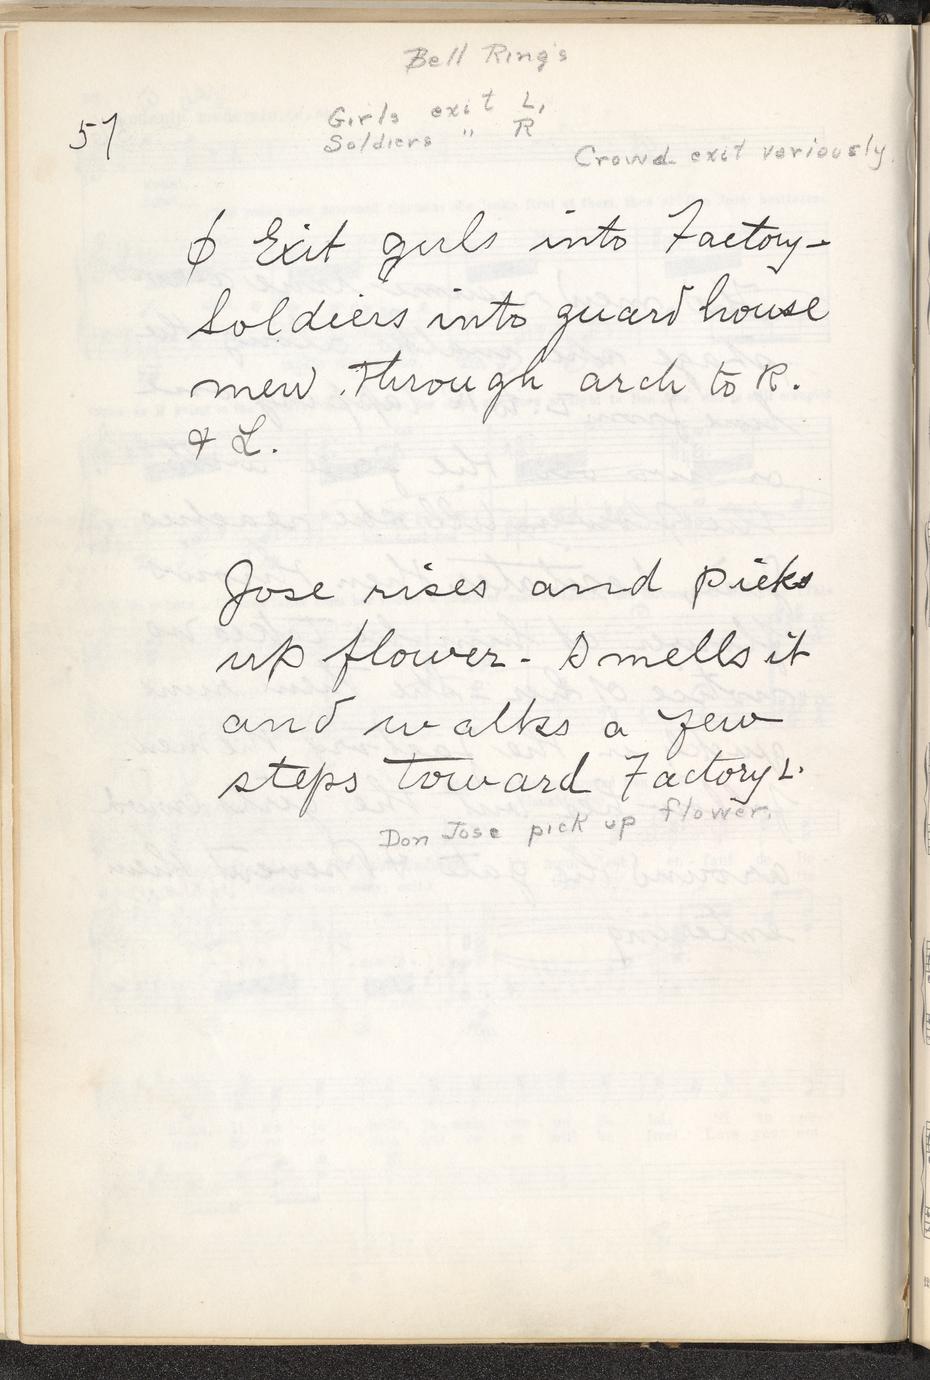 Bell Ring's
Girls exit L,
Soldiers " R
57
Crowd exit variously.
ϕ Exit girls into Factory—
Soldiers into guard house
men through arch to R.
& L.
Jose rises and picks
up flower - Smells it
and walks a few
steps toward Factory L.
Don Jose pick up flower.